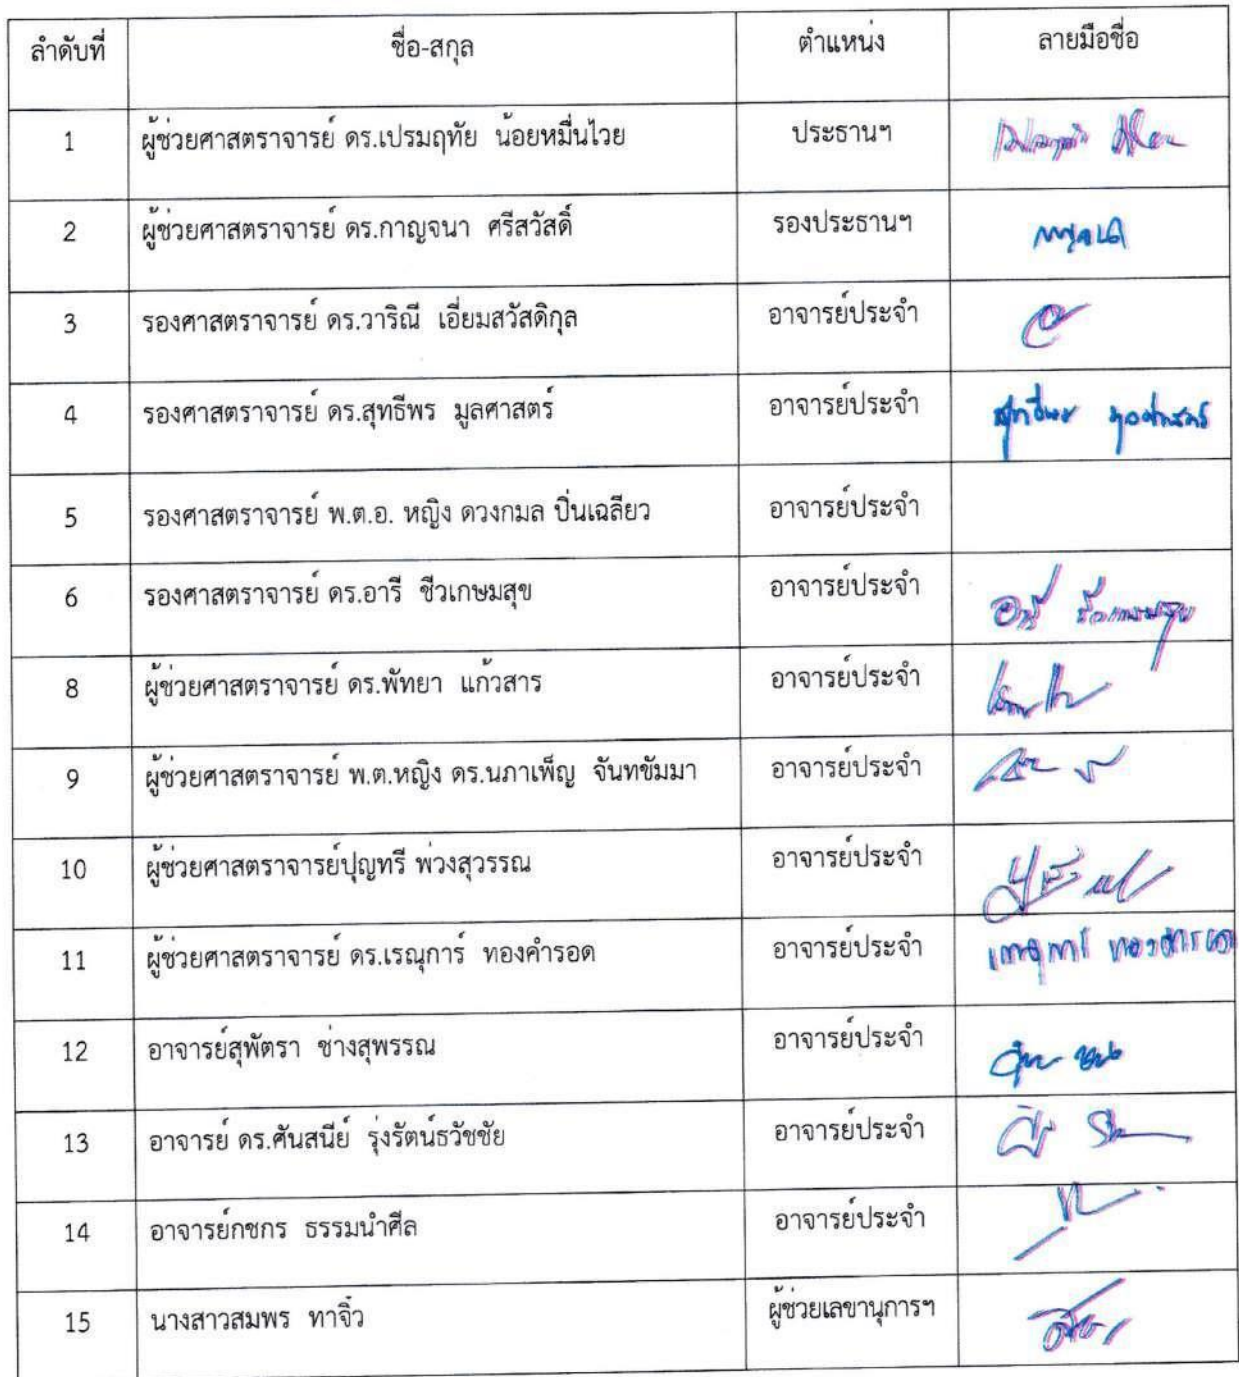 ลำดับที่ ชื่อ-สกุล ตำแหน่ง ลายมือชื่อ
1 ผู้ช่วยศาสตราจารย์ ดร.เปรมฤทัย น้อยหมื่นไวย ประธานฯ
2 ผู้ช่วยศาสตราจารย์ ดร.กาญจนา ศรีสวัสดิ์ รองประธานฯ กาญจนา
3 รองศาสตราจารย์ ดร.วาริณี เอี่ยมสวัสดิกุล อาจารย์ประจำ
4 รองศาสตราจารย์ ดร.สุทธีพร มูลศาสตร์ อาจารย์ประจำ สุทธีพร มูลศาสตร์
5 รองศาสตราจารย์ พ.ต.อ. หญิง ดวงกมล ปิ่นเฉลียว อาจารย์ประจำ
6 รองศาสตราจารย์ ดร.อารี ชีวเกษมสุข อาจารย์ประจำ อารี ชีวเกษมสุข
8 ผู้ช่วยศาสตราจารย์ ดร.พัทยา แก้วสาร อาจารย์ประจำ
9 ผู้ช่วยศาสตราจารย์ พ.ต.หญิง ดร.นภาเพ็ญ จันทขัมมา อาจารย์ประจำ
10 ผู้ช่วยศาสตราจารย์ปุญทรี พ่วงสุวรรณ อาจารย์ประจำ
11 ผู้ช่วยศาสตราจารย์ ดร.เรณุการ์ ทองคำรอด อาจารย์ประจำ เรณุการ์ ทองคำรอด
12 อาจารย์สุพัตรา ช่างสุพรรณ อาจารย์ประจำ
13 อาจารย์ ดร.ศันสนีย์ รุ่งรัตน์ธวัชชัย อาจารย์ประจำ
14 อาจารย์กชกร ธรรมนำศีล อาจารย์ประจำ
15 นางสาวสมพร ทาจิ๋ว ผู้ช่วยเลขานุการฯ